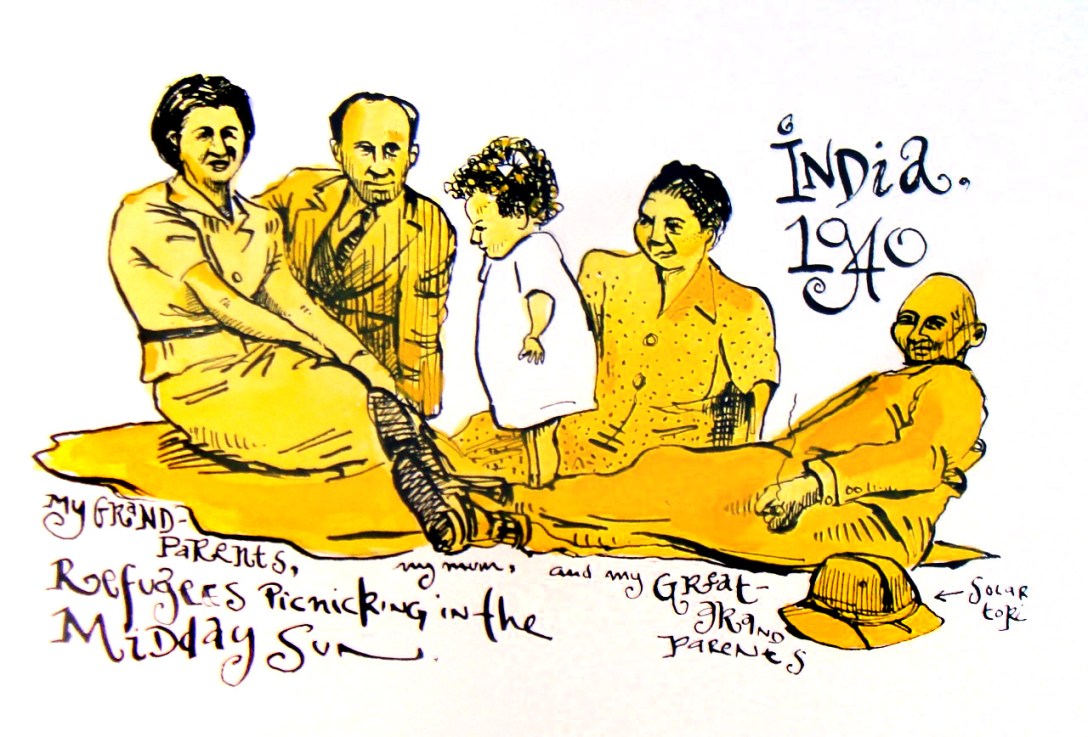 India.
1940
My Grand-
Parents,
my mum,
and my Great-
Grand
Parents
Refugees Picnicking in the
Midday Sun.
← Solar
topi